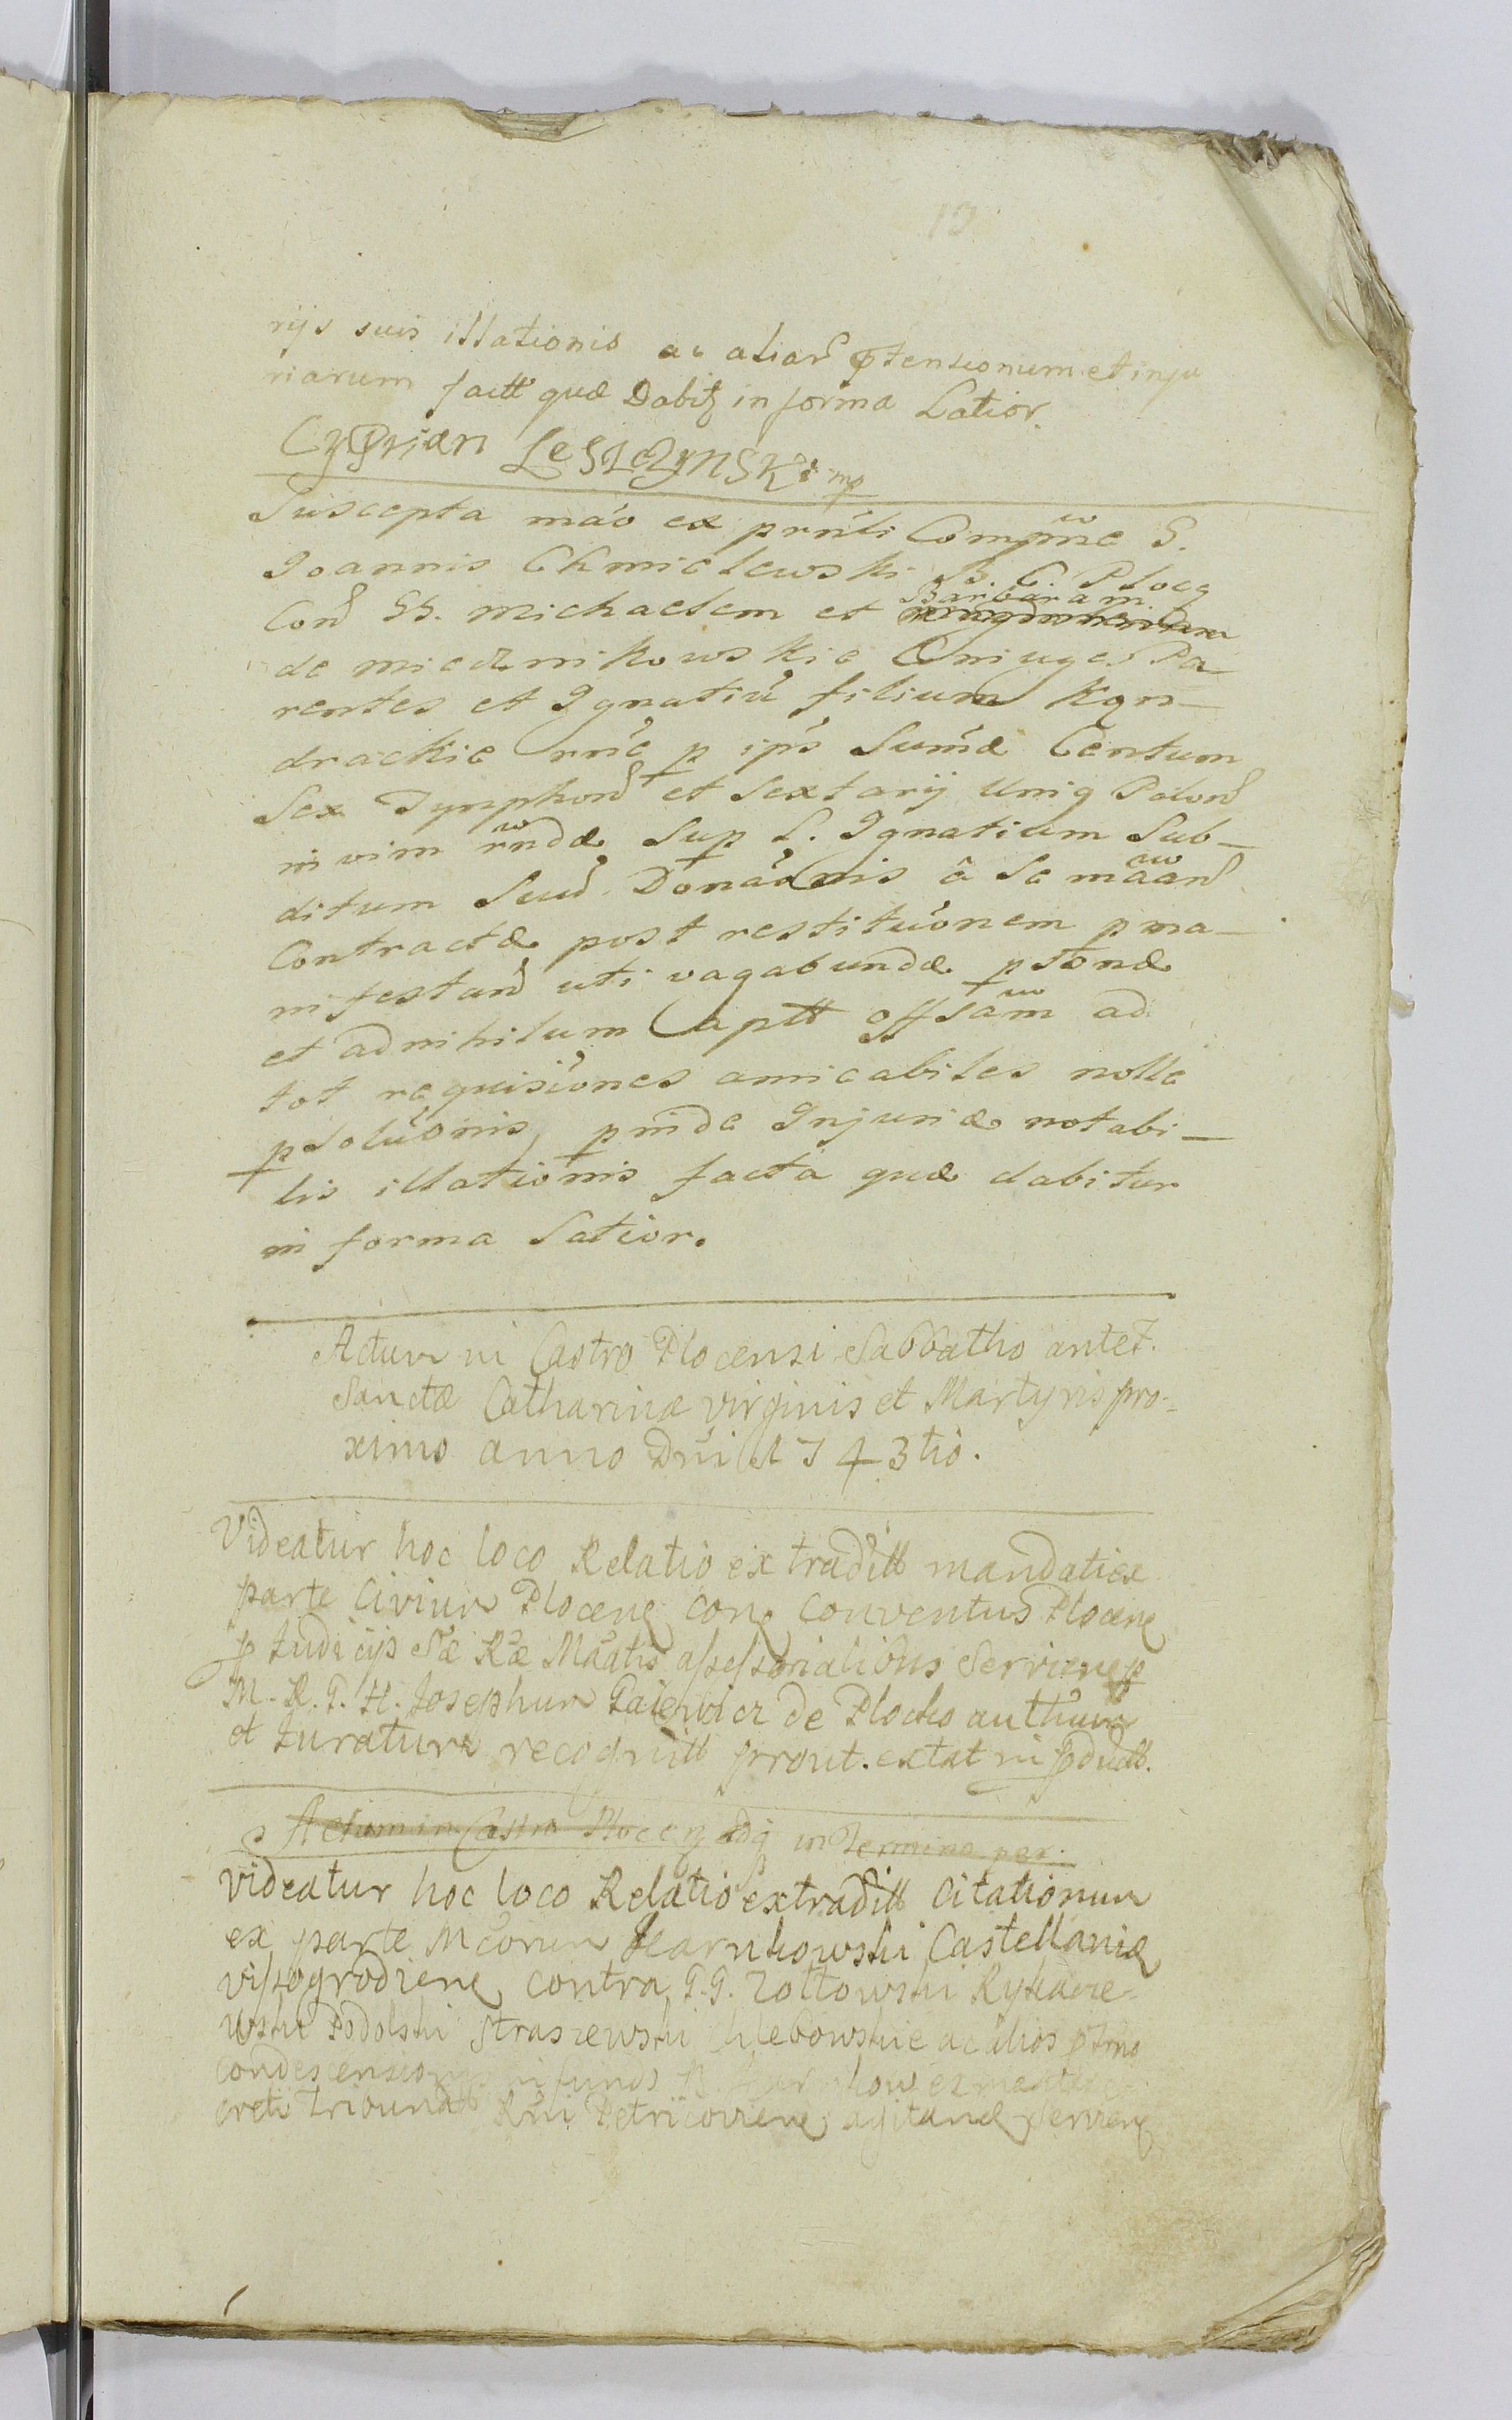 13
rijs suis illationis ac aliar ptensionum et inju
riarum factt quæ Dabit in forma Latior.
Cyprian LeSzczynSKi mp
Suscepta mão ex prnti Compme S.
Joannis Chmielewski B. C. Ploc
Con SS. Michaelem et Barbaram
de Miecznikowskie Coniuges Pa-
rentes et Ignatiu filium Kon-
drackie rne p ips Sumæ Centum
Sex Tymphon et Sextarij Uniq Polon
in vim rndæ Sup S. Ignatium Sub-
ditum Suu Donãonis â Se mãan
Contractæ post restituonem p ma-
nifestan uti vagabundæ psonæ
et ad nihilum aptt Offsam ad
tot requisiones amicabiles nolle
psoluonis, pinde Injuriæ notabi-
lis illationis facta quæ dabitur
in forma Latior.
Actum in Castro Plocensi Sabbatho ante F.
Sanctæ Catharinæ virginis et Martyris pro-
ximo anno Dni 1743tio.
Videatur hoc loco Relatio extraditt mandati ex
parte Civium Plocen con Conventus Plocen
p Judicijs Sæ Ræ Maatis assessorialibus Servien p
M. R. T. H. Josephum de Plocko authum
et Juratum recognitt prout extat in pduct.
Actum in Castro Plocen fdq in Termino per.
Videatur hoc loco Relatio extraditt Citationum
ex parte Mcorum Karnkowski Castellaniæ
vissogrodien contra G. G. Zoltowski Rykacze-
wski Podolski Straszewski Chlebowskie ac alios ptmo
condescensionis in fundos
creti Tribunal Rni Petricovien agitand Servien